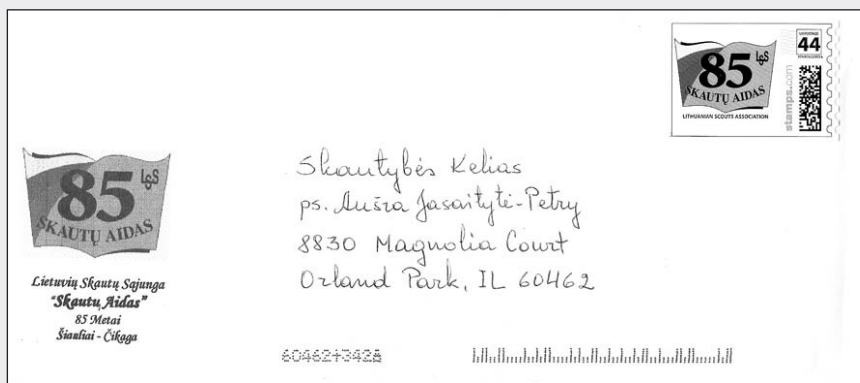 85
LSS
SKAUTŲ AIDAS
LITHUANIAN SCOUTS ASSOCIATION
stamps.com
US POSTAGE
44
85
LSS
SKAUTŲ AIDAS
Lietuvių Skautų Sąjunga
"Skautų Aidas"
85 Metai
Šiauliai - Čikaga
Skautybės Kelias
ps. Aušra Jasaitytė-Petry
8830 Magnolia Court
Orland Park, IL 60462
60462+3428